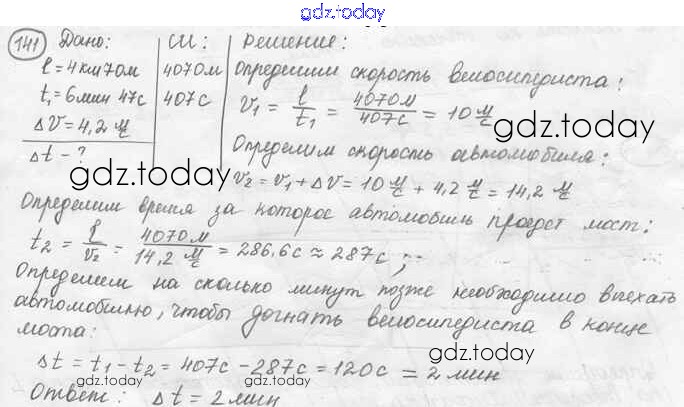 gdz.today
141 Дано: СИ: Решение:
l = 4км70м 4070м Определим скорость велосипедиста:
t₁ = 6мин 47с 407с v₁ = l/t₁ = 4070м/407с = 10 м/с
Δv = 4,2 м/с gdz.today
Δt - ? Определим скорость автомобиля:
gdz.today v₂ = v₁ + Δv = 10 м/с + 4,2 м/с = 14,2 м/с
Определим время за которое автомобиль проедет мост:
t₂ = l/v₂ = 4070м/14,2 м/с = 286,6с ≈ 287с; gdz.today
Определим на сколько минут позже необходимо выехать
автомобилю, чтобы догнать велосипедиста в конце
моста:
gdz.today
Δt = t₁ - t₂ = 407с - 287с = 120с = 2 мин
gdz.today gdz.today
Ответ: Δt = 2 мин